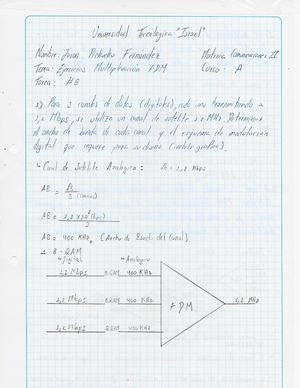 Universidad Tecnológica "Israel"
Nombre: Juan Pichucho Fernández Materia: Comunicaciones II
Tema: Ejercicios Multiplexación FDM Curso: A
Tarea: #8
1) Para 3 canales de datos (digitales), cada uno transmitiendo a
1,2 Mbps, se utiliza un canal de satélite 1,2 MHz. Determinar
el ancho de banda de cada canal y el esquema de modulación
digital que requiere para acchano (incluir grafico).
Canal de Satélite Analógico:
AB =
3 (canales)
AB =
3
AB = 400 KHz (Ancho de Banda del canal)
8-QAM
Digital Analógico
1,2 Mbps 8QAM 400 KHz
1,2 Mbps 8QAM 400 KHz FDM 1,2 MHz
1,2 Mbps 8QAM 400 KHz